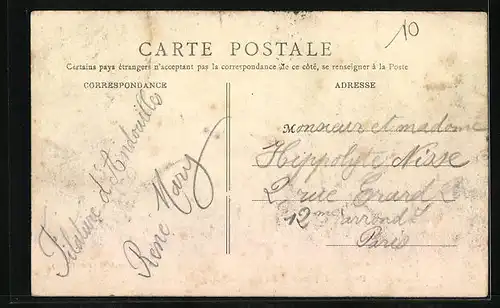 10
CARTE POSTALE
Certains pays étrangers n'acceptant pas la correspondance de ce côté, se renseigner à la Poste
CORRESPONDANCE
ADRESSE
Filature d'Andouilles
René Mary
Monsieur et madame
Hippolyte Nisse
2 rue Erard
12me arrond
Paris